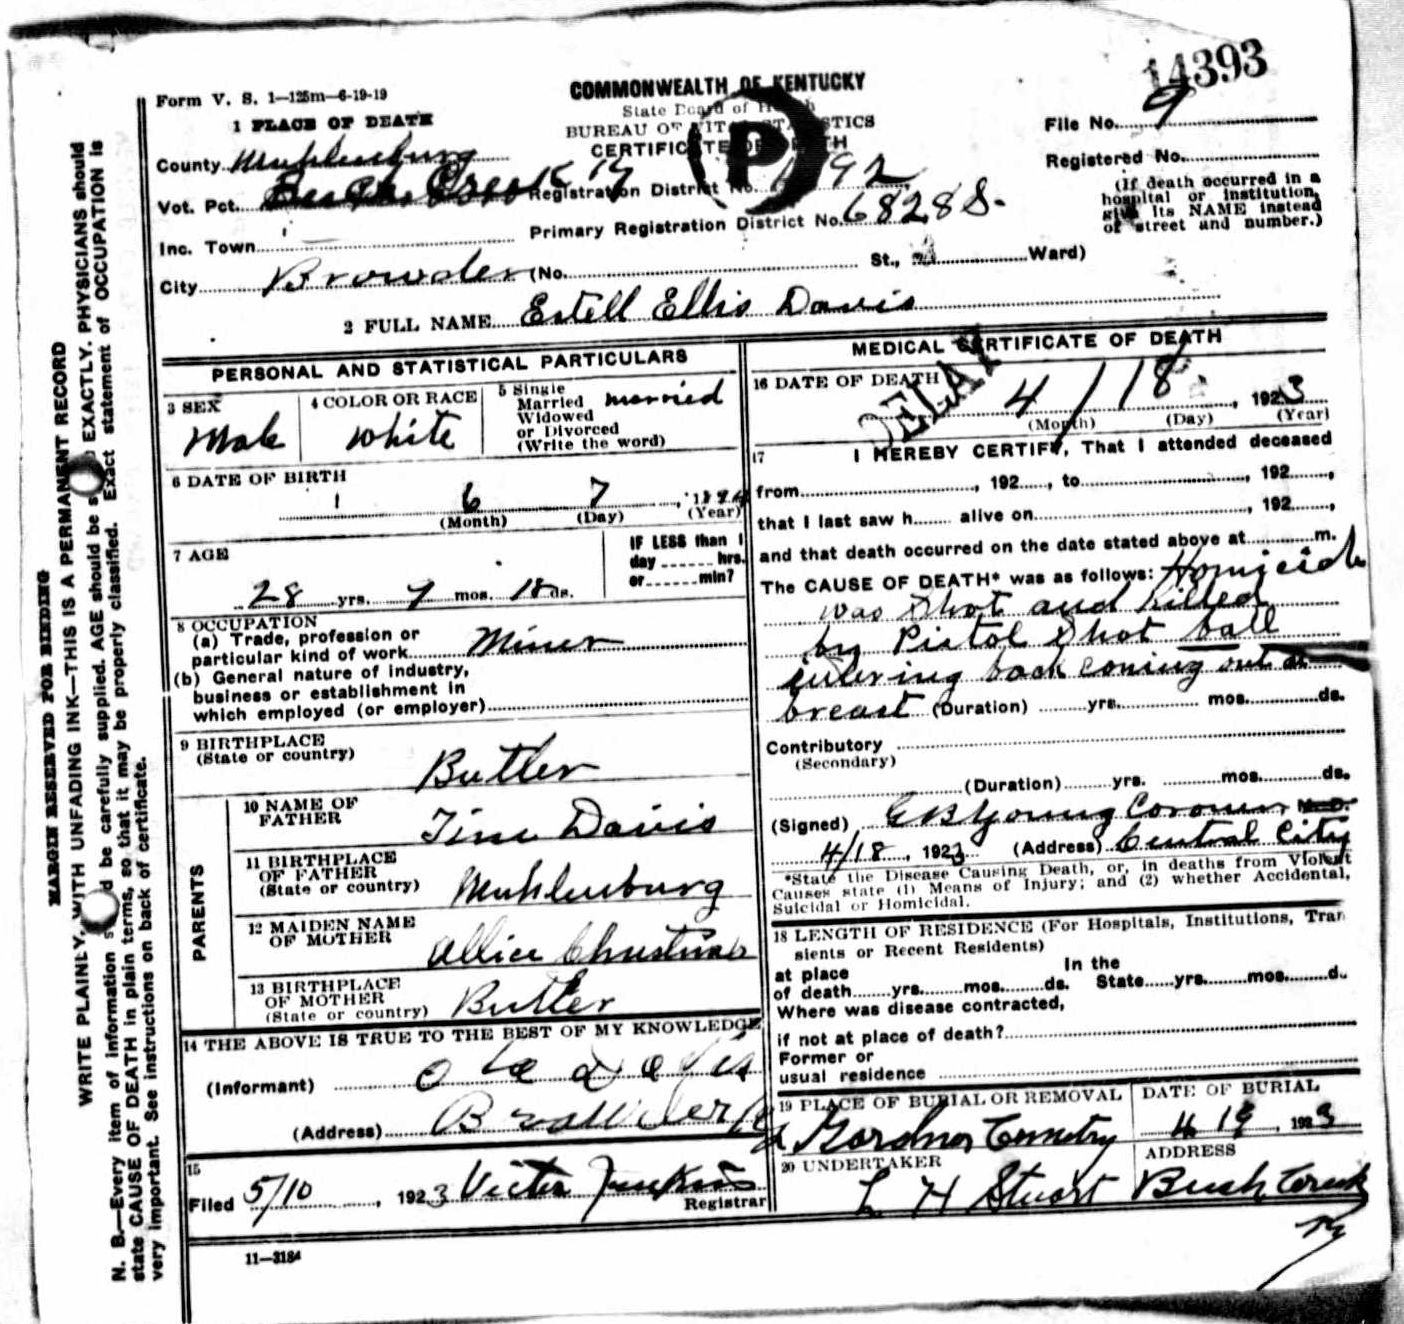 14393
Form V. S. 1—125m—6-19-19
COMMONWEALTH OF KENTUCKY
State Board of Health
BUREAU OF VITAL STATISTICS
CERTIFICATE OF DEATH
P
1 PLACE OF DEATH
County Muhlenburg
Vot. Pct.
Registration District No. 92
Inc. Town
Primary Registration District No. 6828S.
City Browder (No. St., Ward)
File No. 9
Registered No.
(If death occurred in a
hospital or institution,
give its NAME instead
of street and number.)
2 FULL NAME Estell Ellis Davis
PERSONAL AND STATISTICAL PARTICULARS
3 SEX
Male
4 COLOR OR RACE
White
5 Single
Married
Widowed
or Divorced
(Write the word)
married
6 DATE OF BIRTH
6 7, 1894
(Month) (Day) (Year)
7 AGE
28 yrs. 9 mos. 18 ds.
IF LESS than 1
day hrs.
or min?
8 OCCUPATION
(a) Trade, profession or
particular kind of work Miner
(b) General nature of industry,
business or establishment in
which employed (or employer)
9 BIRTHPLACE
(State or country)
Butler
PARENTS
10 NAME OF
FATHER
Davis
11 BIRTHPLACE
OF FATHER
(State or country)
Muhlenburg
12 MAIDEN NAME
OF MOTHER
13 BIRTHPLACE
OF MOTHER
(State or country)
Butler
14 THE ABOVE IS TRUE TO THE BEST OF MY KNOWLEDGE
(Informant)
(Address) Browder Ky
15
Filed 5/10, 1923 Victor Jenkins
Registrar
11—3184
MEDICAL CERTIFICATE OF DEATH
DELAY
16 DATE OF DEATH
4 / 18, 1923
(Month) (Day) (Year)
17 I HEREBY CERTIFY, That I attended deceased
from, 192, to, 192,
that I last saw h alive on, 192,
and that death occurred on the date stated above at m.
The CAUSE OF DEATH* was as follows: Homicide
was Shot and killed
by Pistol Shot ball
intering back coming out at
breast (Duration) yrs. mos. ds.
Contributory
(Secondary)
(Duration) yrs. mos. ds.
(Signed) C B Young Coroner M. D.
4/18, 1923 (Address) Central City
*State the Disease Causing Death, or, in deaths from Violent
Causes state (1) Means of Injury; and (2) whether Accidental,
Suicidal or Homicidal.
18 LENGTH OF RESIDENCE (For Hospitals, Institutions, Tran
sients or Recent Residents)
at place In the
of death yrs. mos. ds. State yrs. mos. d.
Where was disease contracted,
if not at place of death?
Former or
usual residence
19 PLACE OF BURIAL OR REMOVAL
Gardner Cemetry
DATE OF BURIAL
4 19, 1923
20 UNDERTAKER
L H Stuart
ADDRESS
Creek
Ky
MARGIN RESERVED FOR BINDING
WRITE PLAINLY, WITH UNFADING INK—THIS IS A PERMANENT RECORD
N. B.—Every item of information should be carefully supplied. AGE should be stated EXACTLY. PHYSICIANS should
state CAUSE OF DEATH in plain terms, so that it may be properly classified. Exact statement of OCCUPATION is
very important. See instructions on back of certificate.